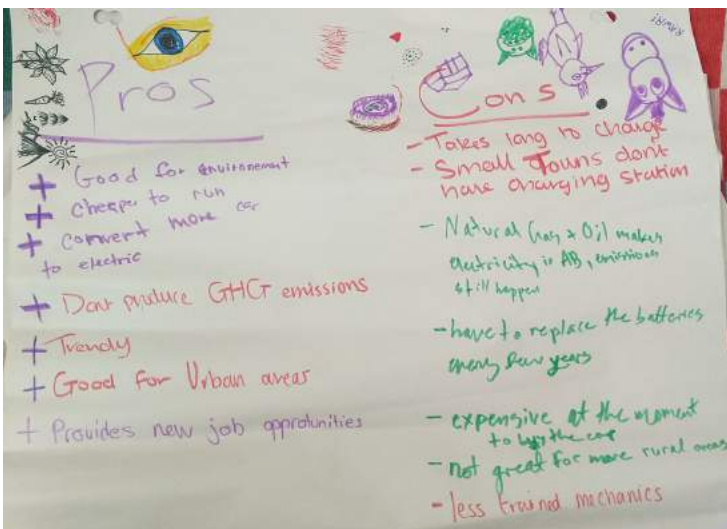 Pros
+ Good for environnement
+ cheaper to run
+ convert more car
to electric
+ Dont produce GHG emissions
+ Trendy
+ Good for Urban areas
+ Provides new job opprotunities
Cons
- Takes long to charge
- Small Touns dont
have charging station
- Natural Gas + Oil makes
electricity in AB, emissions
still happen
- have to replace the batteries
every few years
- expensive at the moment
to buy the car
- not great for more rural areas
- less trained mechanics